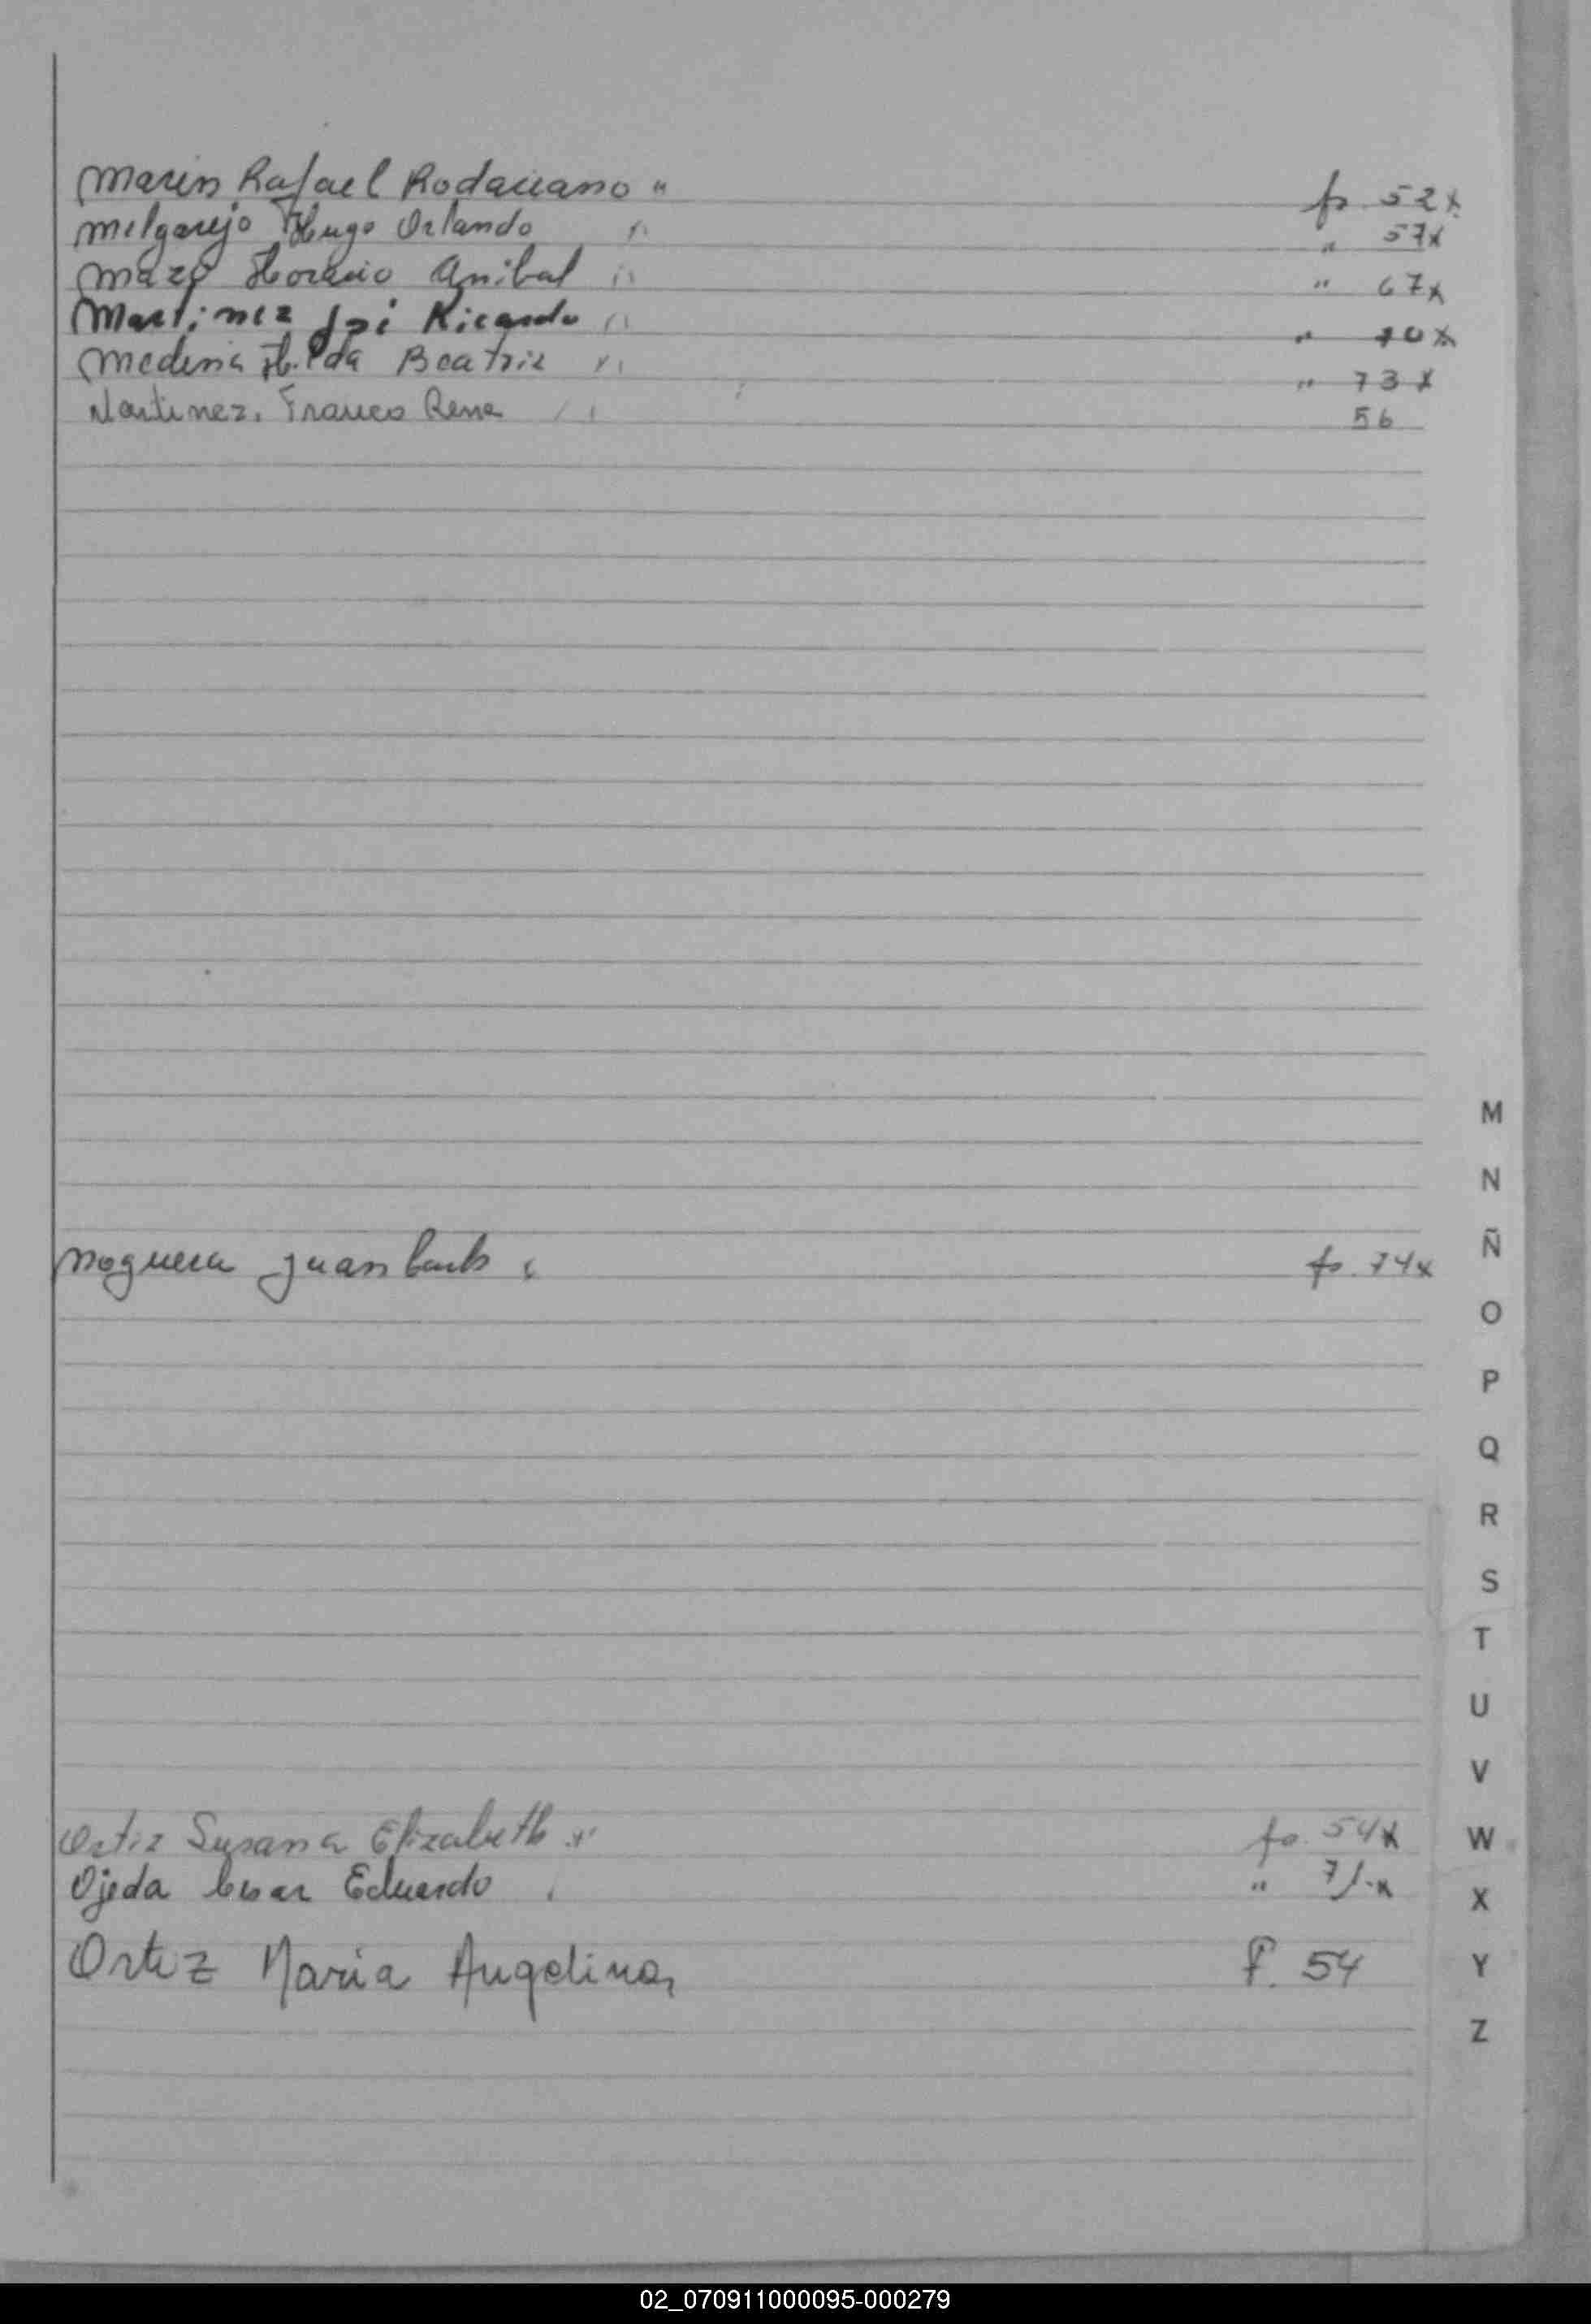 Marin Rafael " fo 52x
Melgarejo Hugo Orlando " " 57x
Mazo Horacio Anibal " " 67x
Martinez José Ricardo " " 70x
Medina Hilda Beatriz " " 73x
Martinez, Franco Rene 56
M
N
Noguera Juan Carlos fo. 74x
Ñ
O
P
Q
R
S
T
U
V
Ortiz Susana Elizabeth fo. 54x
W
Ojeda Cesar Eduardo " 71-x
X
Ortiz Maria Angelina, F. 54
Y
Z
02_070911000095-000279